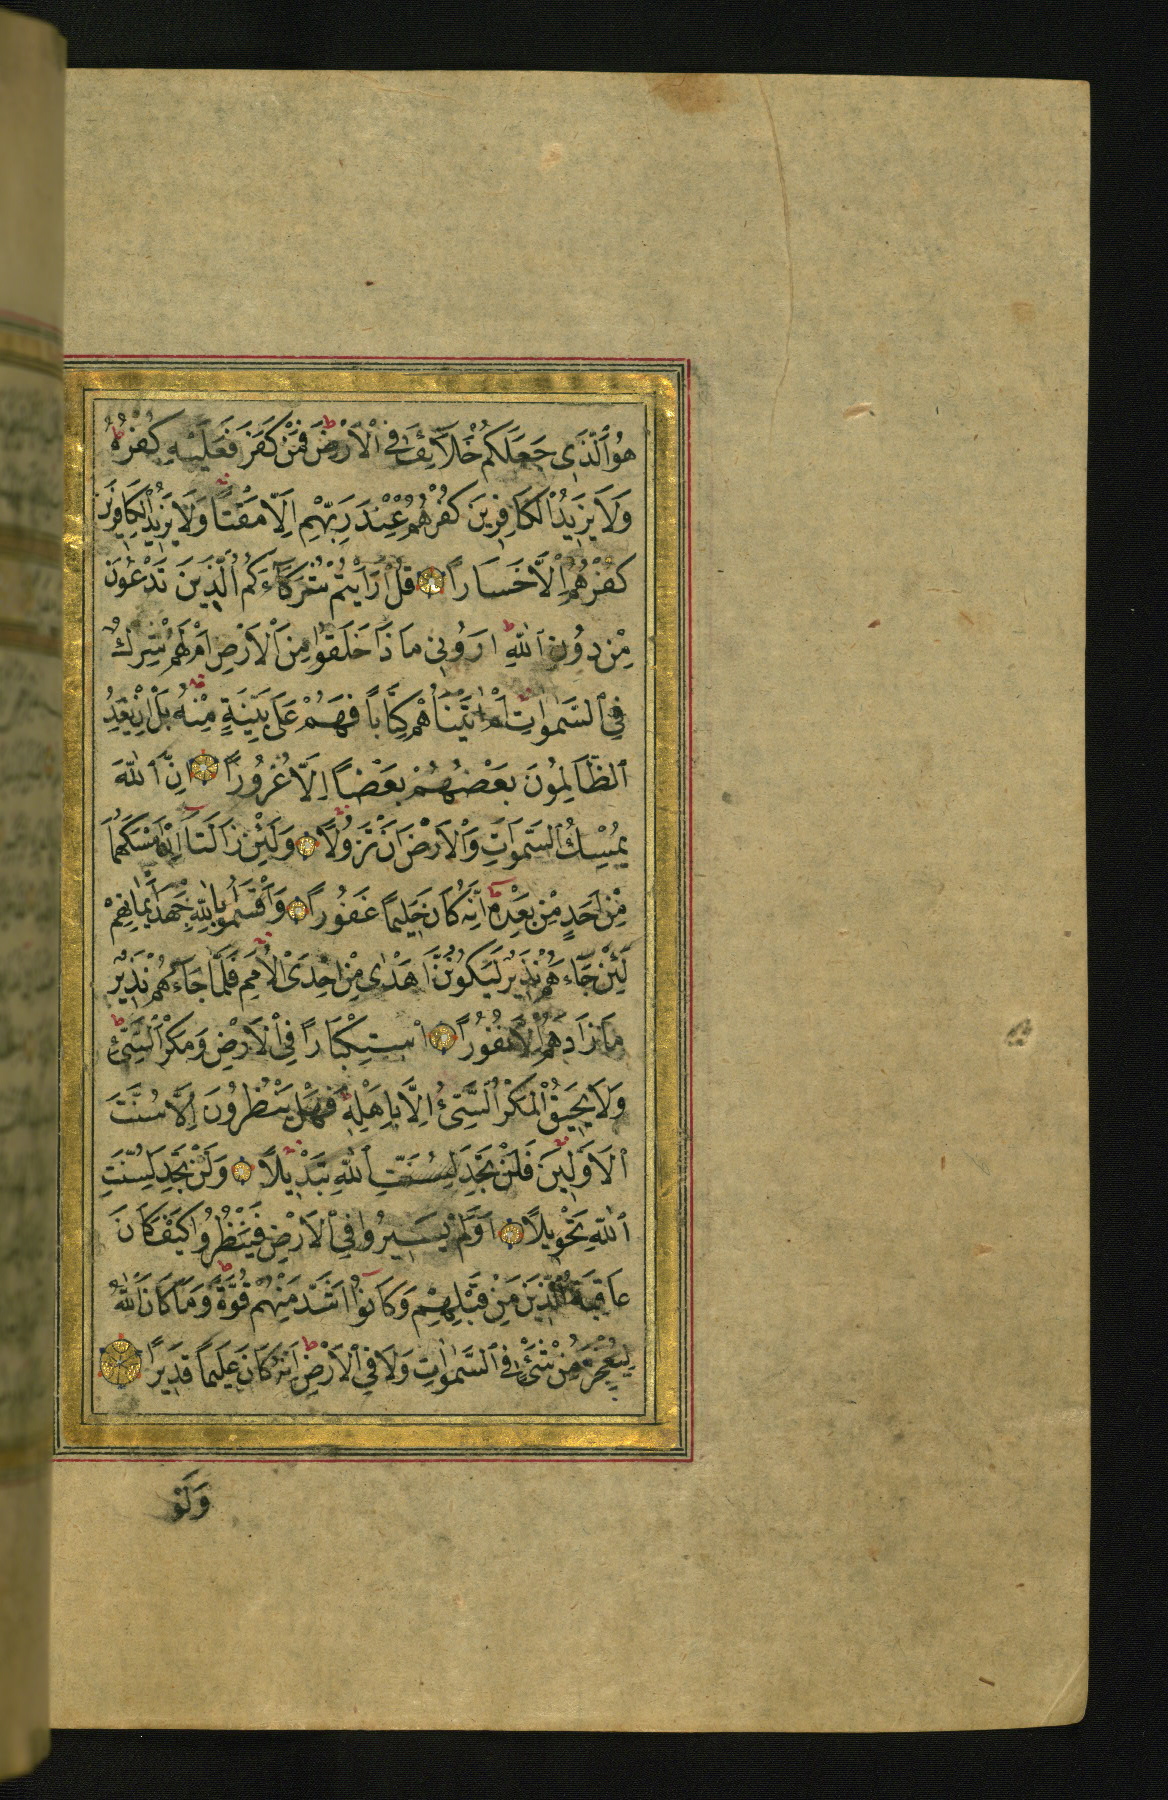 هُوَ ٱلَّذِى جَعَلَكُمْ خَلَآئِفَ فِى ٱلْاَرْضِ فَمَنْ كَفَرَ فَعَلَيْهِ كُفْرُهُ
وَلَا يَزِيدُ ٱلْكَافِرِينَ كُفْرُهُمْ عِنْدَ رَبِّهِمْ اِلَّا مَقْتًا وَلَا يَزِيدُ ٱلْكَافِرِينَ
كُفْرُهُمْ اِلَّا خَسَارًا قُلْ اَرَاَيْتُمْ شُرَكَآءَكُمُ ٱلَّذِينَ تَدْعُونَ
مِنْ دُونِ ٱللّٰهِ اَرُونِى مَاذَا خَلَقُوا مِنَ ٱلْاَرْضِ اَمْ لَهُمْ شِرْكٌ
فِى ٱلسَّمٰوَاتِ اَمْ اٰتَيْنَاهُمْ كِتَابًا فَهُمْ عَلَى بَيِّنَةٍ مِنْهُ بَلْ اِنْ يَعِدُ
ٱلظَّالِمُونَ بَعْضُهُمْ بَعْضًا اِلَّا غُرُورًا اِنَّ ٱللّٰهَ
يُمْسِكُ ٱلسَّمٰوَاتِ وَٱلْاَرْضَ اَنْ تَزُولَا وَلَئِنْ زَالَتَا اِنْ اَمْسَكَهُمَا
مِنْ اَحَدٍ مِنْ بَعْدِهِ اِنَّهُ كَانَ حَلِيمًا غَفُورًا وَاَقْسَمُوا بِاللّٰهِ جَهْدَ اَيْمَانِهِمْ
لَئِنْ جَآءَهُمْ نَذِيرٌ لَيَكُونُنَّ اَهْدٰى مِنْ اِحْدَى ٱلْاُمَمِ فَلَمَّا جَآءَهُمْ نَذِيرٌ
مَا زَادَهُمْ اِلَّا نُفُورًا اسْتِكْبَارًا فِى ٱلْاَرْضِ وَمَكْرَ ٱلسَّيِّئِ
وَلَا يَحِيقُ ٱلْمَكْرُ ٱلسَّيِّئُ اِلَّا بِاَهْلِهِ فَهَلْ يَنْظُرُونَ اِلَّا سُنَّتَ
ٱلْاَوَّلِينَ فَلَنْ تَجِدَ لِسُنَّتِ ٱللّٰهِ تَبْدِيلًا وَلَنْ تَجِدَ لِسُنَّتِ
ٱللّٰهِ تَحْوِيلًا اَوَلَمْ يَسِيرُوا فِى ٱلْاَرْضِ فَيَنْظُرُوا كَيْفَ كَانَ
عَاقِبَةُ ٱلَّذِينَ مِنْ قَبْلِهِمْ وَكَانُوا اَشَدَّ مِنْهُمْ قُوَّةً وَمَا كَانَ ٱللّٰهُ
لِيُعْجِزَهُ مِنْ شَىْءٍ فِى ٱلسَّمٰوَاتِ وَلَا فِى ٱلْاَرْضِ اِنَّهُ كَانَ عَلِيمًا قَدِيرًا
وَلَوْ